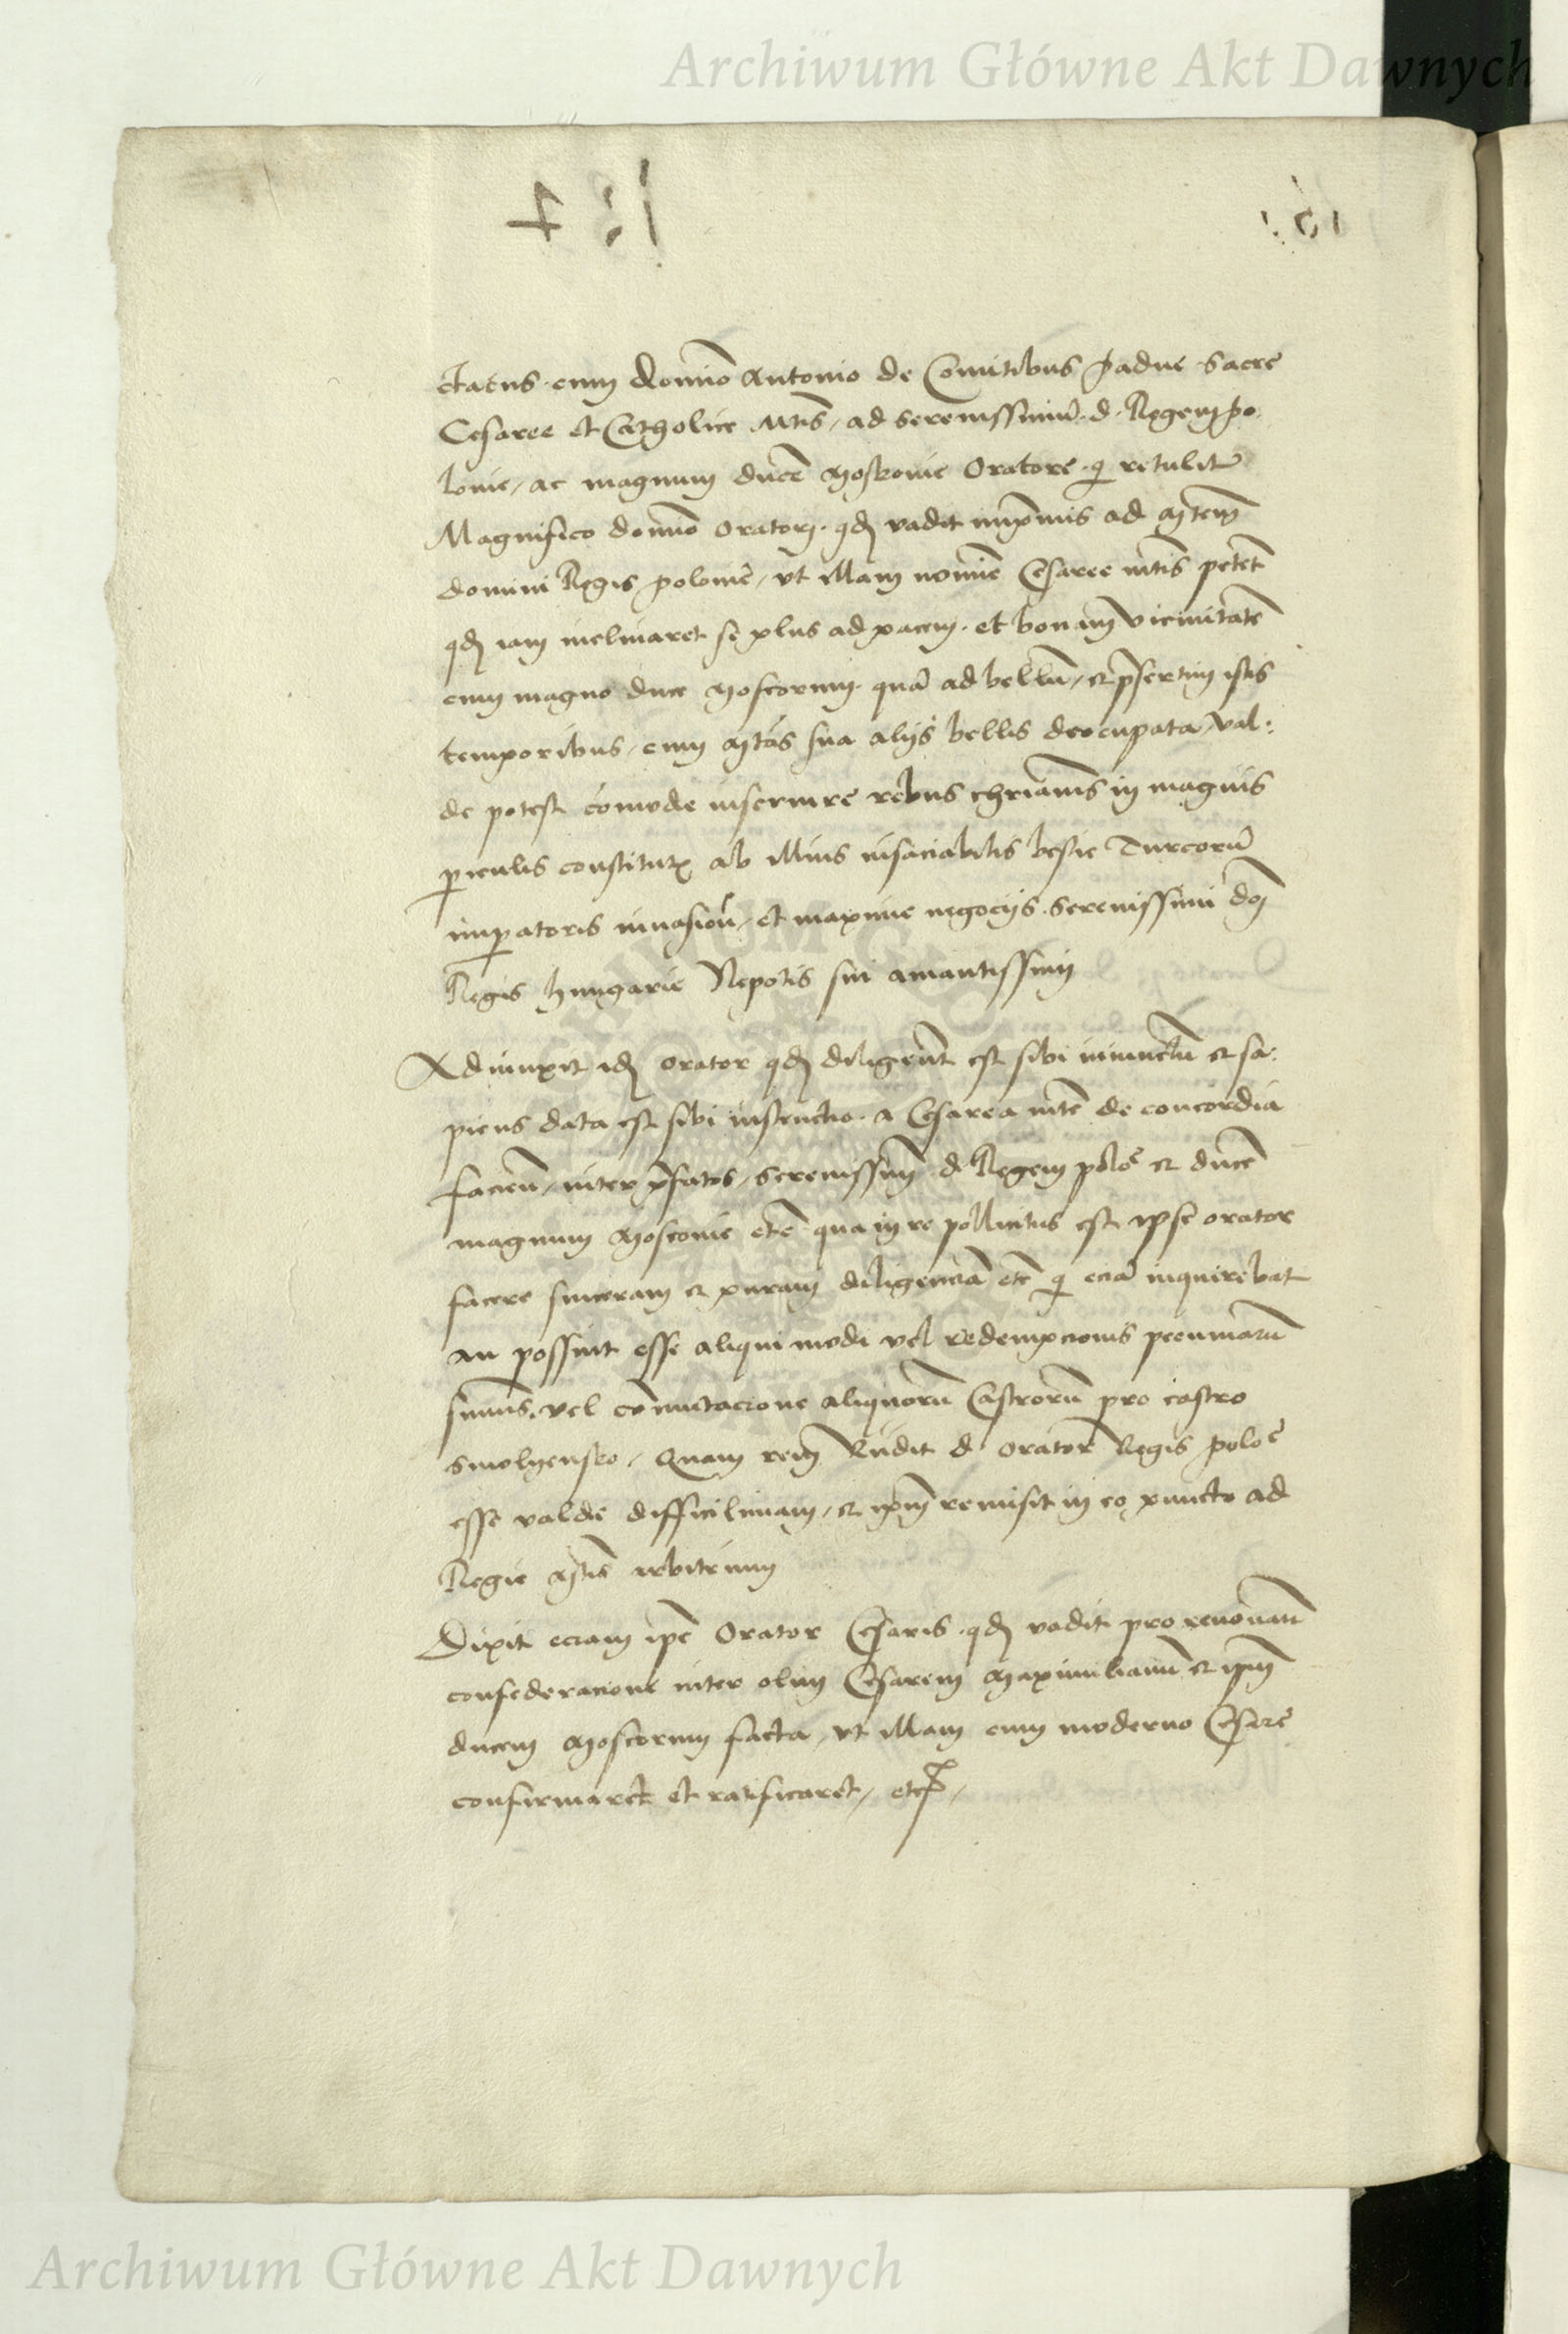 Archiwum Główne Akt Dawnych
ctatus cum domino Antonio de Comitibus padue Sacre
Cesaree et Catholice Mtis, ad serenissimũ d. Regem po
lonie, ac magnum ducẽ Moskovie Oratore q retulit
Magnifico domino oratori qđ vadit inprimis ad Mtem
domini Regis polonie, vt illam nomine Cesaree mtis petet
qđ iam inclinaret se plus ad pacem et bonam vicinitatẽ
cum magno duce Moscorum quã ad bellũ, et presertim istis
temporibus, cum Mtas sua alijs bellis deocupata val:
de potest comode inservire rebus christianis in magnis
periculis constitutis ab illius insaciabilis bestie Turcorũ
imperatoris invasione, et maxime negocijs Serenissimi dni
Regis Hungarie Nepotis sui amantissimi
Adiunxit idem orator qđ diligenter est sibi iniunctũ et sa:
piens data est sibi instructio a Cesarea mte de concordia
facien, inter prefatos, serenissimũ d. Regem polo et ducẽ
magnum Moscovie etc qua in re pollicitus est ipse orator
facere sinceram et puram diligenciã etc q eciã inquirebat
an possint esse aliqui modi vel redempcionis pecuniarũ
summis, vel comutacione aliquorũ Castrorũ pro castro
Smolyensko, Quam rem d. orator Regis polo
esse valde difficilimam, et ipm remisit in eo puncto ad
Regie Mtis arbitrium
Dixit eciam ipe Orator Cesaris qđ vadit pro renovan
confederacione inter olim Cesarem Maximilianũ et ipm
ducem Moscorum facta, vt illam cum moderno Cesare
confirmaret et ratificaret, etc
Archiwum Główne Akt Dawnych